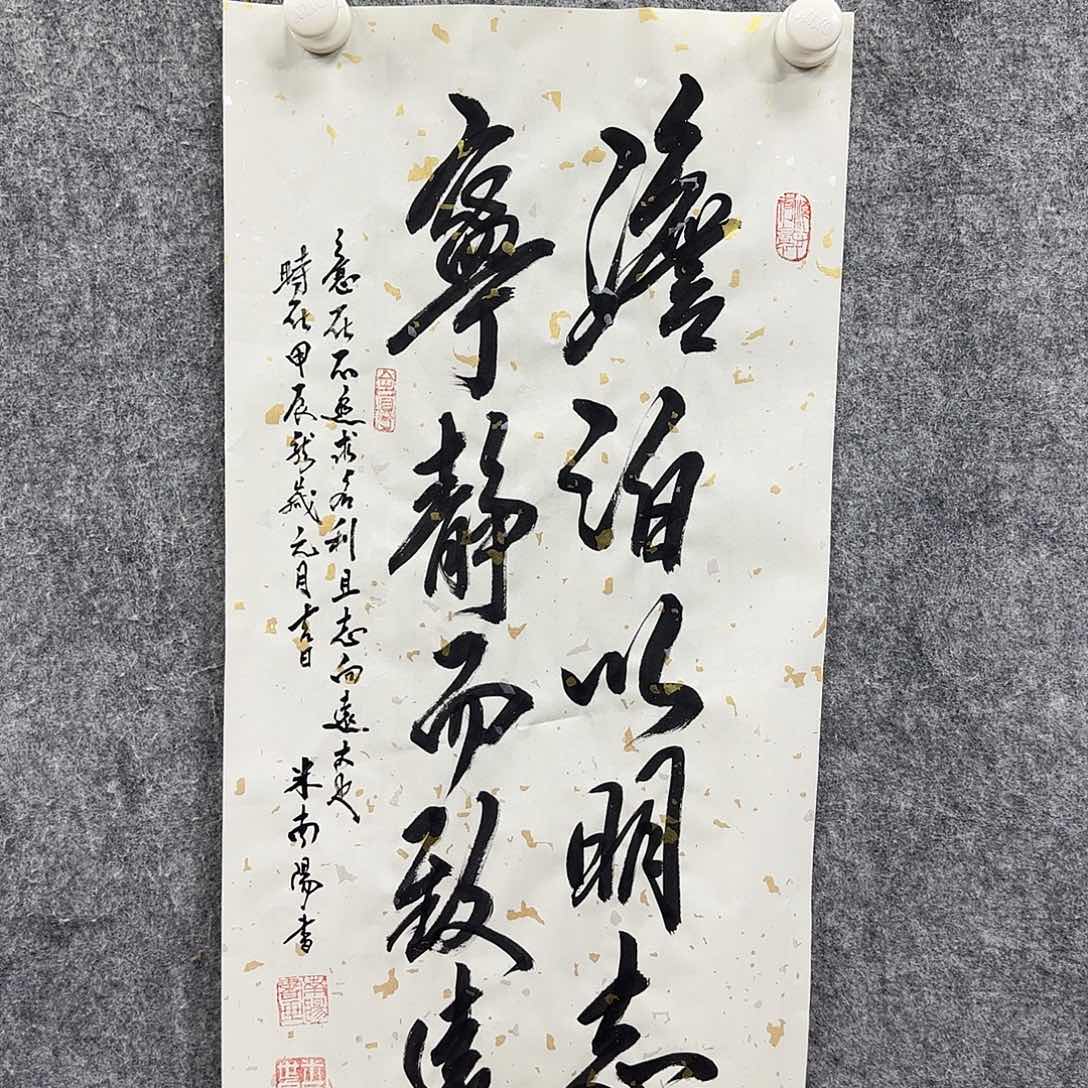 澹泊以明志
寧靜而致遠
意在不急求名利且志向遠大也
時在甲辰龍歲元月吉日
米南陽書